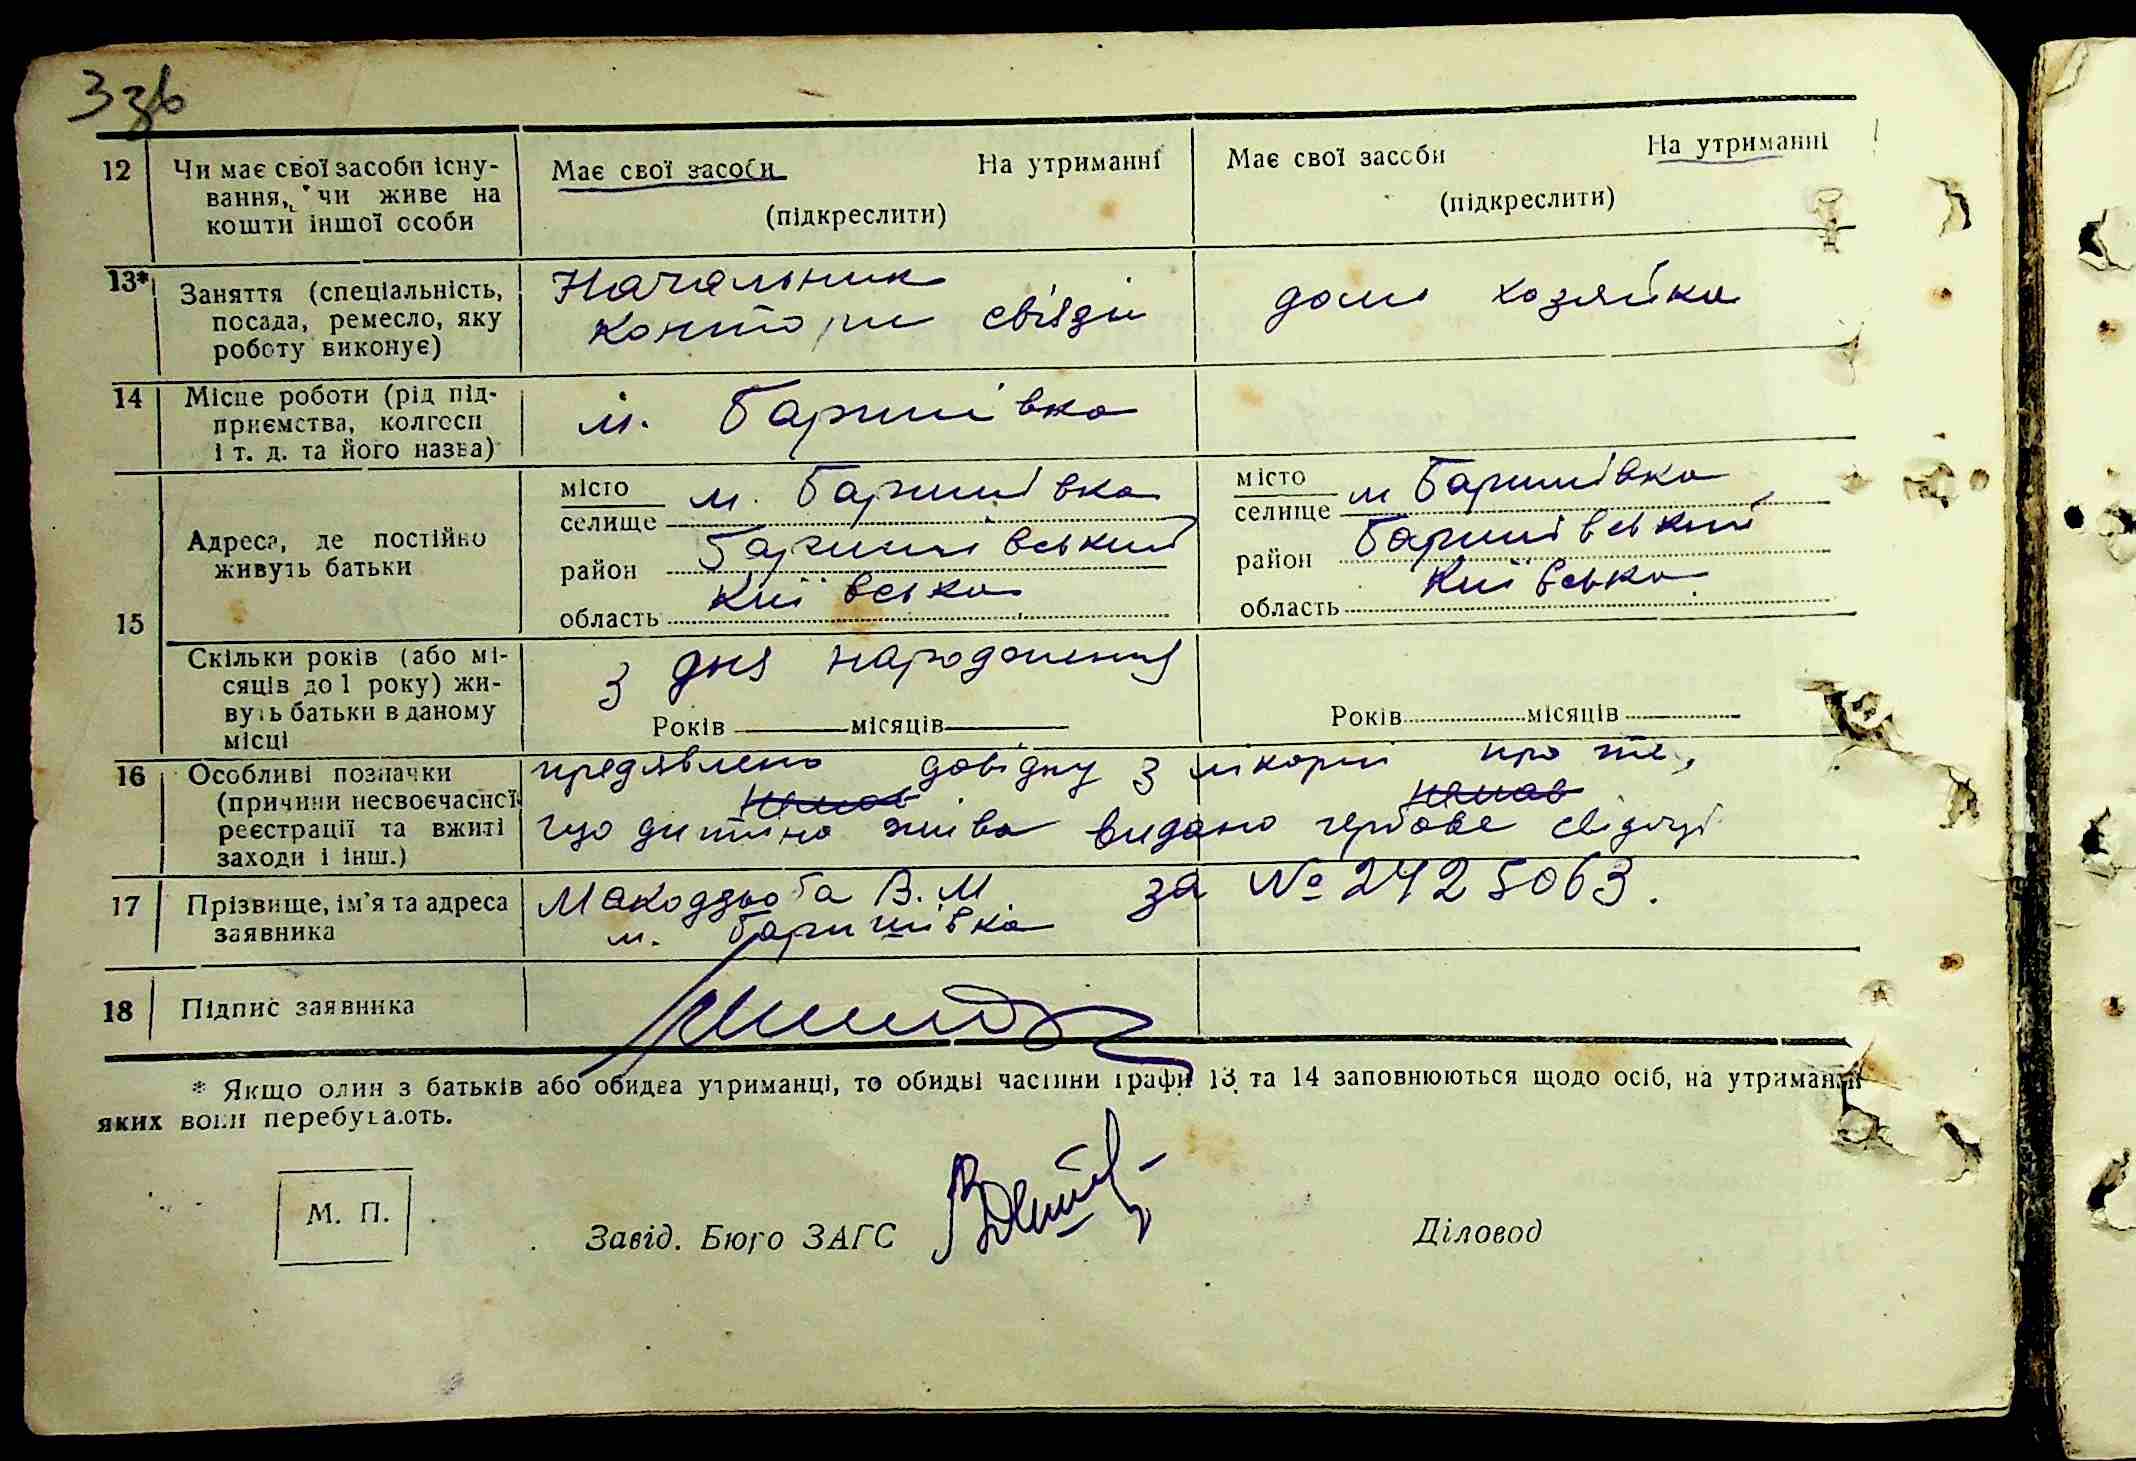 3 зв
12 Чи має свої засоби існу- Має свої засоби На утриманні Має свої засоби На утриманні
вання, чи живе на (підкреслити) (підкреслити)
кошти іншої особи
13* Заняття (спеціальність, Начальник дом хозяйка
посада, ремесло, яку контори свіязи
роботу виконує)
14 Місце роботи (рід під- м. Баришівка
приємства, колгосп
і т. д. та його назва)
15 Адреса, де постійно місто м. Баришівка місто м Баришівка
живуть батьки селище селище
район Баришівський район Баришівський
область Київська область Київська
Скільки років (або мі- З дня народження
сяців до 1 року) жи- Років місяців Років місяців
вуть батьки в даному
місці
16 Особливі позначки предявлено довідку з лікарні про те,
(причини несвоєчасної
реєстрації та вжиті що дитина жива видано гербове свідоці
заходи і інш.)
17 Прізвище, ім'я та адреса Макодзьоба В. М за № 2425063.
заявника м. Баришівка
18 Підпис заявника
* Якщо один з батьків або обидва утриманці, то обидві частини графи 13 та 14 заповнюються щодо осіб, на утриманні
яких вони перебувають.
М. П. Завід. Бюро ЗАГС Діловод